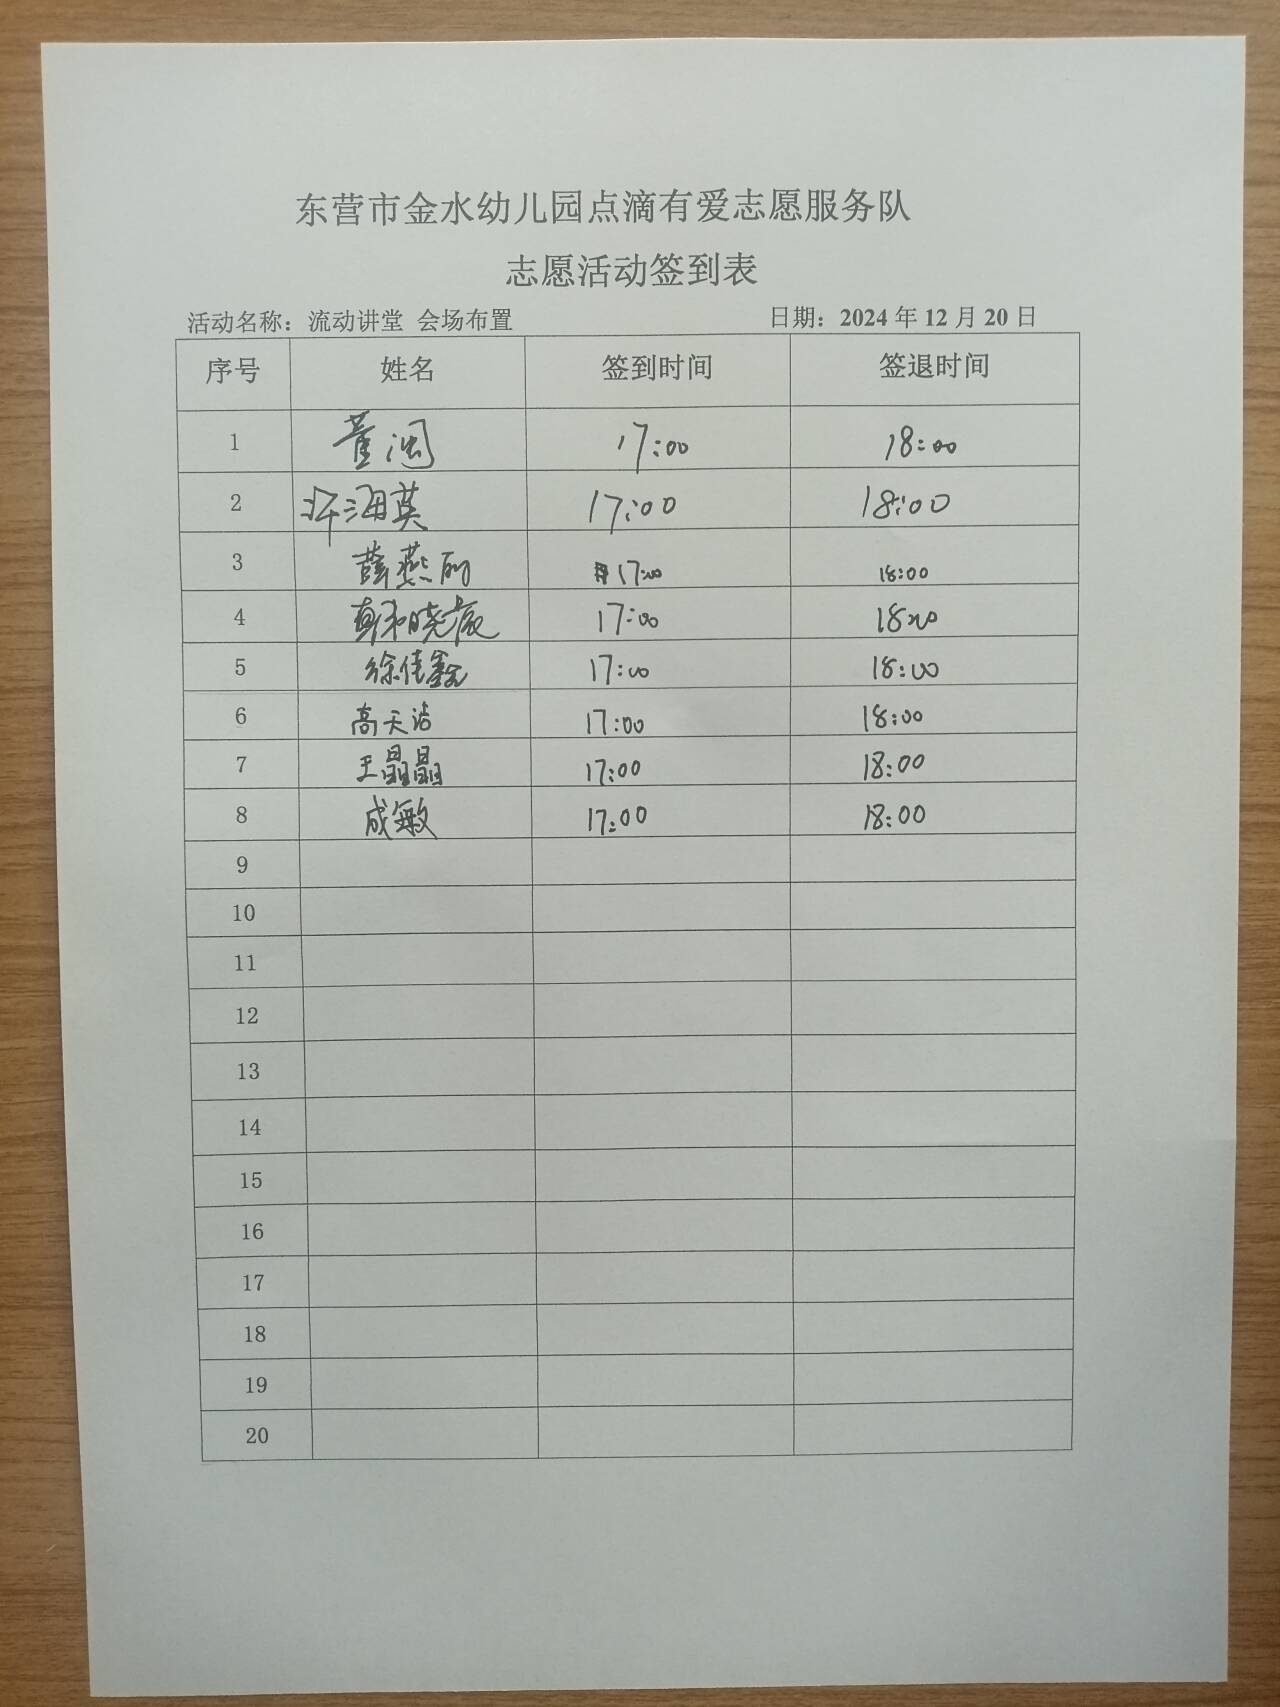 东营市金水幼儿园点滴有爱志愿服务队
志愿活动签到表
活动名称：流动讲堂 会场布置 日期：2024年12月20日
序号 姓名 签到时间 签退时间
1 董润 17:00 18:00
2 许海英 17:00 18:00
3 薛燕丽 17:00 18:00
4 17:00 18:00
5 徐佳鑫 17:00 18:00
6 高天洁 17:00 18:00
7 王晶晶 17:00 18:00
8 成敏 17:00 18:00
9
10
11
12
13
14
15
16
17
18
19
20